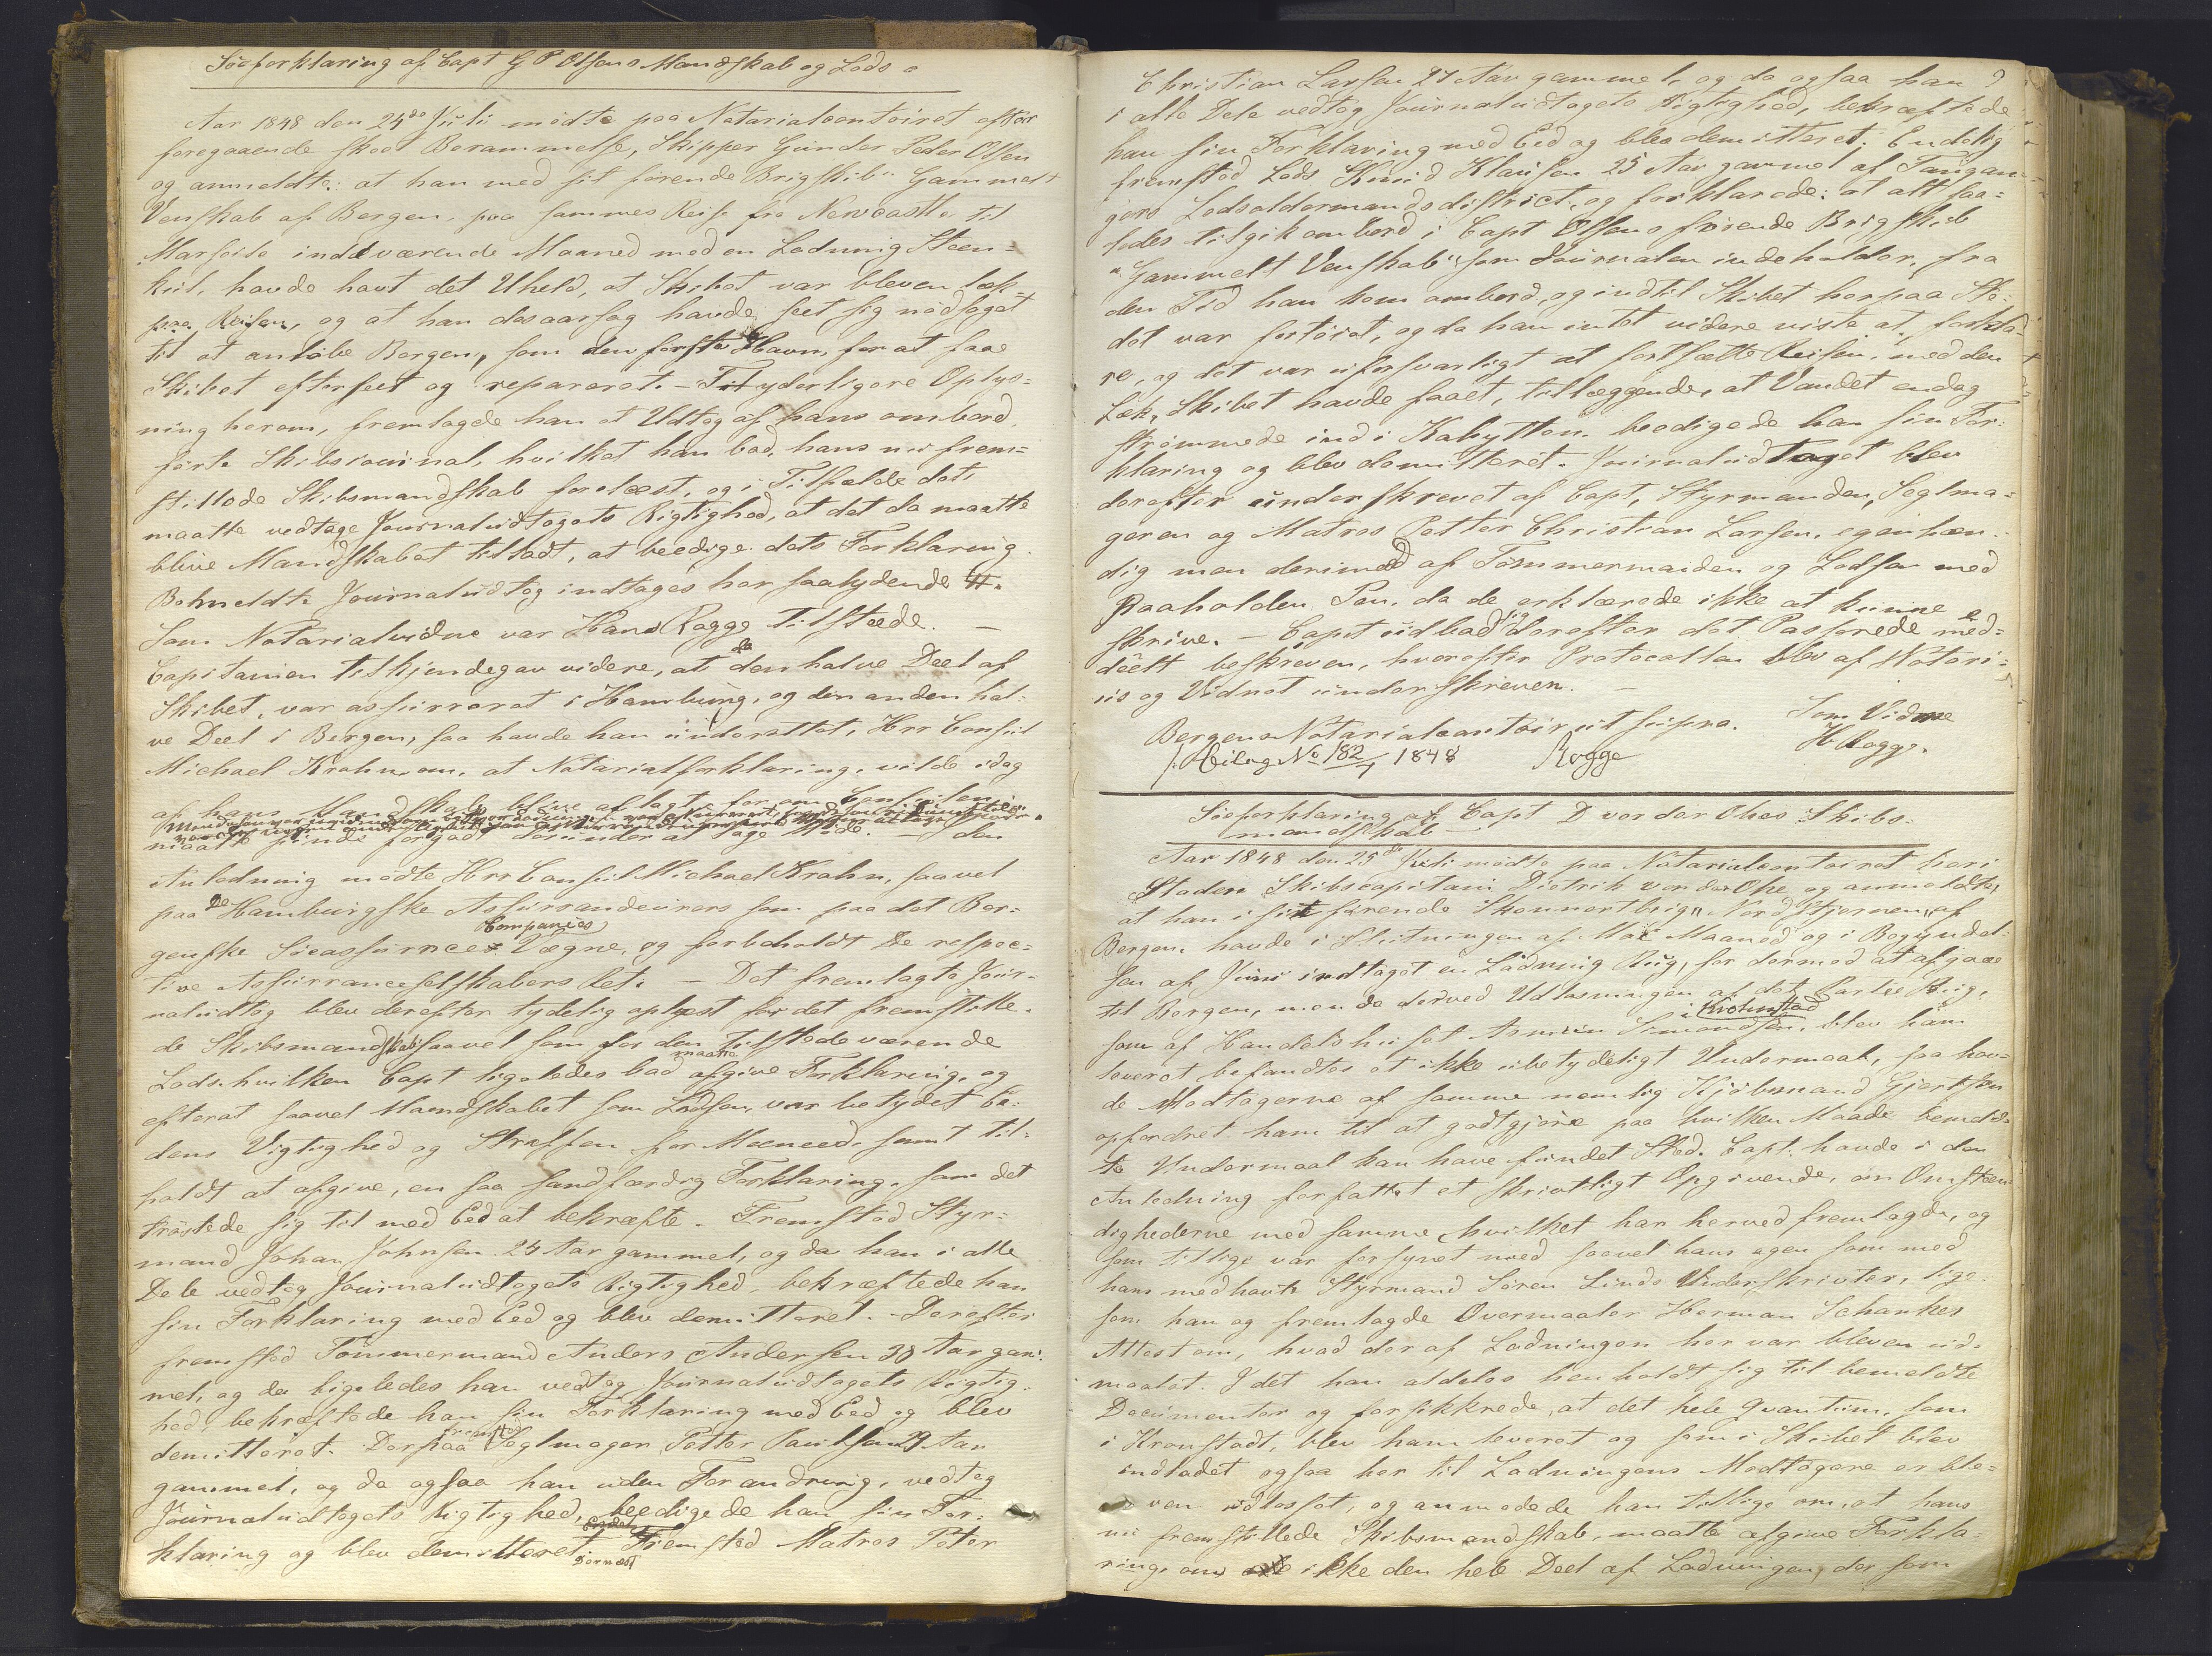 Søeforklaring af Capt G P Olsens Mandskab og Lods.
Aar 1848 den 24de Juli mødte paa Notarialcontoiret efter
foregaaende skeet Berammelse, Skipper Gunder Peder Olsen
og anmeldte: at han med sit førende Brigskib "Gammelt
Venskab af Bergen, paa sammes Reise fra Newcastle til
Marseile inddeværende Maaned med en Ladning Steen=
kul, havde havt det Uheld, at Skibet var bleven læk
paa Reisen, og at han desaarsag havde seet sig nødsaget
til at anløbe Bergen, som den første Havn, for at faae
Skibet efterseet og repareret. – Til yderligere Oplys=
ning herom, fremlagde han et Udtog af hans ombord
førte Skibsjournal, hvilket han bad, hans nu frem=
stillede Skibsmandskab forelæst, og i Tilfælde det
maatte vedtage Journaludtogets Rigtighed, at det da maatte
blive Mandskabet tilladt, at beedige dets Forklaring.
Bemeldte Journaludtog indtages her saalydende
Som Notarialvidne var Hans Rogge tilstæde. –
Capitainen tilkjendegav videre, at da den halve Deel af
Skibet, var assurreret i Hamburg, og den anden hal=
ve Deel i Bergen, saa havde han underrettet, Hrr Consul
Michael Krohn, om, at Notarialforklaring, vilde idag
af hans Mandskab blive aflagt, for om Consulen
maatte finde forgodt derunder at tage Møde. den
Anledning mødte Hrr Consul Michael Krohn, saavel
paa de Hamburgske Assurrandeurers som paa det Ber=
Compagnies
genske Søeassurance Vægne, og forbeholdt de respec=
tive Assurranceselskabers Ret. – Det fremlagte Jour=
naludtog blev derefter tydelig oplæst for det fremstille=
de Skibsmandskab saavel som for den tilstedeværende
maatte
Lods, hvilken Capt ligeledes bad afgive Forklaring, og
efterat saavel Mandskabet som Lodsen, var betydet Ee=
dens Vigtighed og Straffen for Meeneed, samt til=
holdt at afgive, en saa sandfærdig Forklaring, som det
trøstede sig til med Eed at bekræfte. Fremstod Styr=
mand Johan Johnsen 24 Aar gammel, og da han i alle
Dele vedtog Journaludtogets Rigtighed, bekræftede han
sin Forklaring med Eed og blev demitteret. – Derefter
fremstod Tømmermand Anders Andersen 38 Aar gam=
mel, og da ligeledes han vedtog Journaludtogets Rigtig=
hed, bekræftede han sin Forklaring med Eed og blev
fremstod
demitteret. Derpaa Seglmager Petter Paulsen 29 Aar
gammel, og da ogsaa han uden Forandring, vedtog
Journaludtogets Rigtighed, beedigede han sin For=
klaring og blev demitteret. Fremstod Matros Peter
Dernæst
Christian Larsen 27 Aar gammel, og da ogsaa han
i alle Dele vedtog Journaludtogets Rigtighed, bekræftede
han sin Forklaring med Eed og blev demitteret. Endelig
fremstod Lods Knud Klausen 25 Aar gammel af Taugan=
gers Lodsoldermandsdistrict, og forklarede: at alt saa=
ledes tilgik ombord i Capt Olsens førende Brigskib
"Gammelt Venskab" som Journalen indeholder, fra
den Tid han kom ombord, og indtil Skibet herpaa Ste=
det var fortøiet, og da han intet videre viste at forkla=
re, og det var uforsvarligt at fortsætte Reisen, med den
Læk, Skibet havde faaet, tillæggende, at Vandet endog
strømmede ind i Kahytten, beedigede han sin For=
klaring og blev demitteret. Journaludtoget blev
derefter underskrevet af Capt, Styrmanden, Seglma=
geren og Matros Petter Christian Larsen, egenhæn=
dig men derimod af Tømmermanden og Lodsen med
paaholden Pen, da de erklærede ikke at kunne
skrive. – Capt udbad sig derefter det Passerede med=
deelt beskreven, hvorefter Protocollen blev af Notari=
us og Vidnet underskreven. –
Bergens Notarialcontoir ut supra.
Som Vidne
H Rogge.
Rogge
/. Bilag No 182/7 1848
Søeforklaring af Capt D von der Ohes Skibs=
mandskab –
Aar 1848 den 25de Juli mødte paa Notarialcontoiret her i
Staden Skibscapitain Dietrik von der Ohe og anmeldte,
at han i sit førende Skonnertbrig "Nordstjernen" af
Bergen, havde i Slutningen af Mai Maaned og i Begyndel=
sen af Juni indtaget en Ladning Rug, for dermed at afgaae
til Bergen, men da derved Udlosningen af det Partie Rug,
i Kronstad
som af Handelshuset Simondsen, blev ham
leveret befandtes et ikke ubetydeligt Undermaal, saa hav=
de Modtagerne af samme nemlig Kjøbmand Gjertsen
opfordret ham til at godtgjøre paa hvilken Maade bemeld=
te Undermaal kan have fundet Sted. Capt. havde i den
Anledning forfattet et skrivtligt Opgivende, om Omstæn=
dighederne med samme, hvilket han herved fremlagde, og
som tillige var forsynet med saavel hans egen som med
hans medhavte Styrmand Søren Linds Underskrivter, lige=
som han og fremlagde Overmaaler Herman Schankes
Attest om, hvad der af Ladningen her var bleven ud=
maalet. I det han aldeles henholdt sig til bemeldte
Documenter og forsikkrede, at det hele Qvantum, som
i Kronstadt, blev ham leveret og som i Skibet blev
indladet ogsaa her til Ladningens Modtagere er ble=
ven udlosset, og anmodede han tillige om, at hans
nu fremstillede Skibsmandskab, maatte afgive Forkla=
ring, om ikke den hele Deel af Ladningen, der som